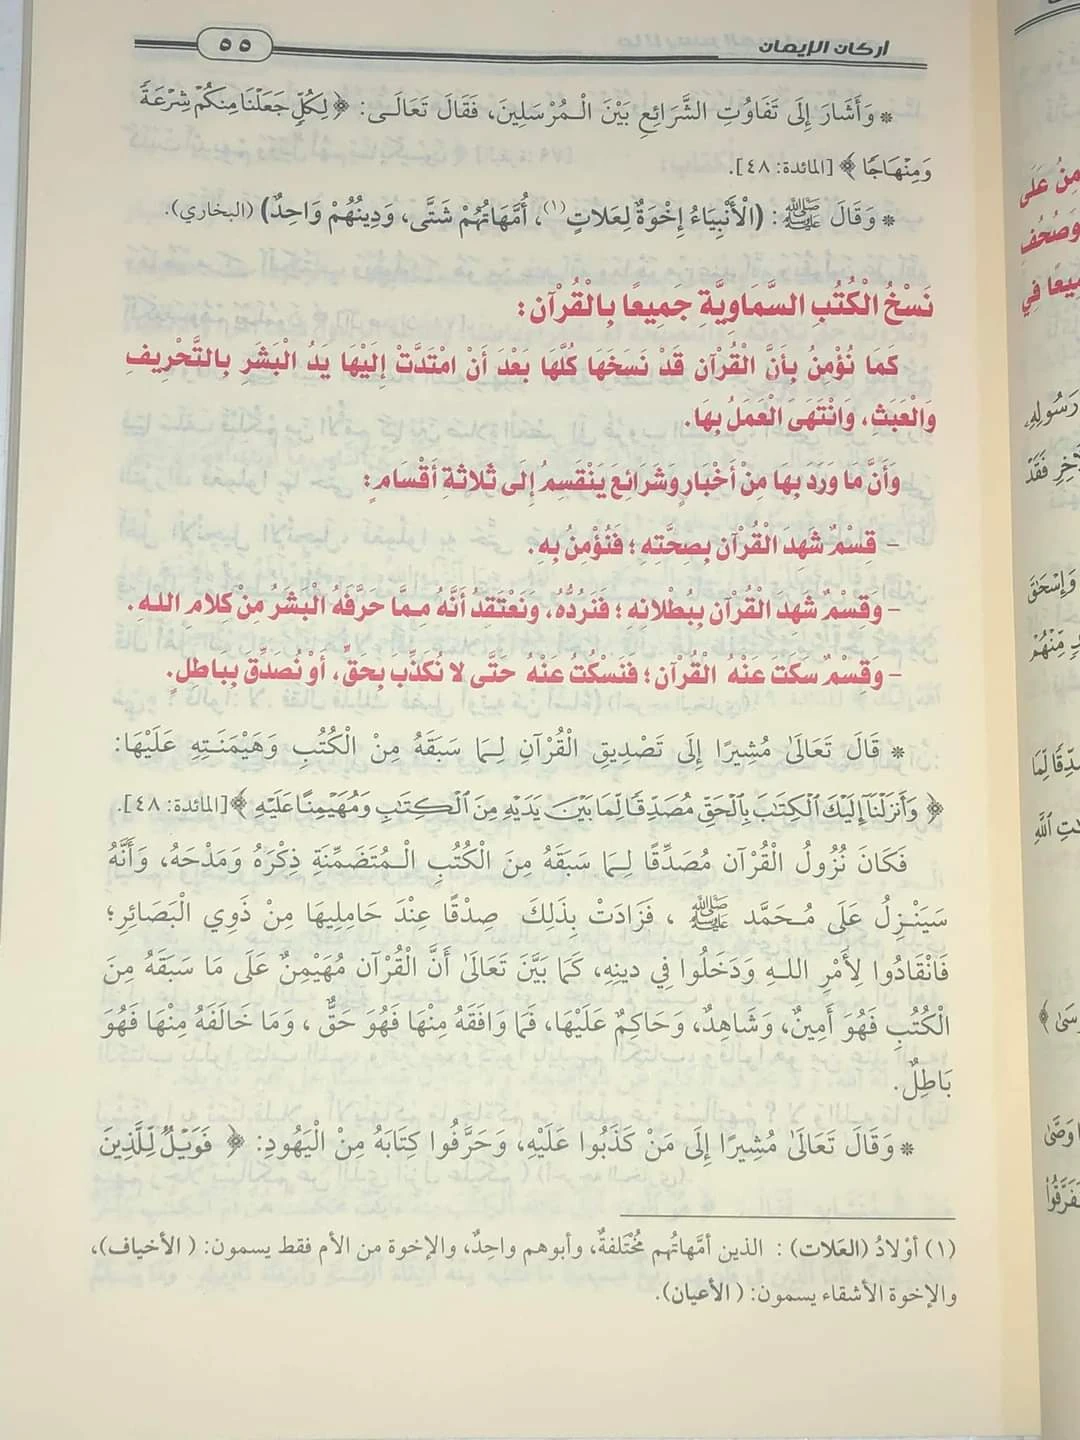 أركان الإيمان ٥٥
* وَأَشَارَ إِلَى تَفَاوُتِ الشَّرَائِعِ بَيْنَ الْـمُرْسَلِينَ، فَقَالَ تَعَالَـى: ﴿ لِكُلٍّ جَعَلْنَا مِنكُمْ شِرْعَةً
وَمِنْهَاجًا ﴾ [المائدة: ٤٨].
* وَقَالَ ﷺ: (الْأَنْبِيَاءُ إِخْوَةٌ لِعَلاتٍ(١)، أُمَّهَاتُهُمْ شَتَّى، وَدِينُهُمْ وَاحِدٌ) (البخاري).
نَسْخُ الْكُتُبِ السَّمَاوِيَّةِ جَمِيعًا بِالْقُرْآنِ:
كَمَا نُؤْمِنُ بِأَنَّ الْقُرْآنَ قَدْ نَسَخَهَا كُلَّهَا بَعْدَ أَنْ امْتَدَّتْ إِلَيْهَا يَدُ الْبَشَرِ بِالتَّحْرِيفِ
وَالْعَبَثِ، وَانْتَهَى الْعَمَلُ بِهَا.
وَأَنَّ مَا وَرَدَ بِهَا مِنْ أَخْبَارٍ وَشَرَائِعَ يَنْقَسِمُ إِلَى ثَلاثَةِ أَقْسَامٍ:
– قِسْمٌ شَهِدَ الْقُرْآنُ بِصِحَّتِهِ؛ فَنُؤْمِنُ بِهِ.
– وَقِسْمٌ شَهِدَ الْقُرْآنُ بِبُطْلانِهِ؛ فَنَرُدُّهُ، وَنَعْتَقِدُ أَنَّهُ مِمَّا حَرَّفَهُ الْبَشَرُ مِنْ كَلامِ اللهِ.
– وَقِسْمٌ سَكَتَ عَنْهُ الْقُرْآنُ؛ فَنَسْكُتُ عَنْهُ حَتَّى لا نُكَذِّبَ بِحَقٍّ، أَوْ نُصَدِّقَ بِبَاطِلٍ.
* قَالَ تَعَالَىٰ مُشِيرًا إِلَى تَصْدِيقِ الْقُرْآنِ لِـمَا سَبَقَهُ مِنْ الْكُتُبِ وَهَيْمَنَـتِهِ عَلَيْهَا:
﴿ وَأَنزَلْنَآ إِلَيْكَ الْكِتَٰبَ بِالْحَقِّ مُصَدِّقًا لِّمَا بَيْنَ يَدَيْهِ مِنَ الْكِتَٰبِ وَمُهَيْمِنًا عَلَيْهِ ﴾ [المائدة: ٤٨].
فَكَانَ نُزُولُ الْقُرْآنِ مُصَدِّقًا لِـمَا سَبَقَهُ مِنَ الْكُتُبِ الْـمُتَضَمِّنَةِ ذِكْرَهُ وَمَدْحَهُ، وَأَنَّهُ
سَيَنْـزِلُ عَلَى مُـحَمَّد ﷺ ، فَزَادَتْ بِذَلِكَ صِدْقًا عِنْدَ حَامِلِيهَا مِنْ ذَوِي الْبَصَائِرِ؛
فَانْقَادُوا لِأَمْرِ اللهِ وَدَخَلُوا فِي دِينِهِ، كَمَا بَيَّنَ تَعَالَىٰ أَنَّ الْقُرْآنَ مُهَيْمِنٌ عَلَى مَا سَبَقَهُ مِنَ
الْكُتُبِ فَهُوَ أَمِينٌ، وَشَاهِدٌ، وَحَاكِمٌ عَلَيْهَا، فَمَا وَافَقَهُ مِنْهَا فَهُوَ حَقٌّ ، وَمَا خَالَفَهُ مِنْهَا فَهُوَ
بَاطِلٌ.
* وَقَالَ تَعَالَىٰ مُشِيرًا إِلَى مَنْ كَذَبُوا عَلَيْهِ، وَحَرَّفُوا كِتَابَهُ مِنْ الْيَهُودِ: ﴿ فَوَيْلٌ لِّلَّذِينَ
(١) أوْلادُ (العَلات) : الذين أمَّهاتُهم مُخْتَلفةٌ، وأبوهم واحِدٌ، والإخوة من الأم فقط يسمون: ( الأخياف)،
والإخوة الأشقاء يسمون: ( الأعيان).